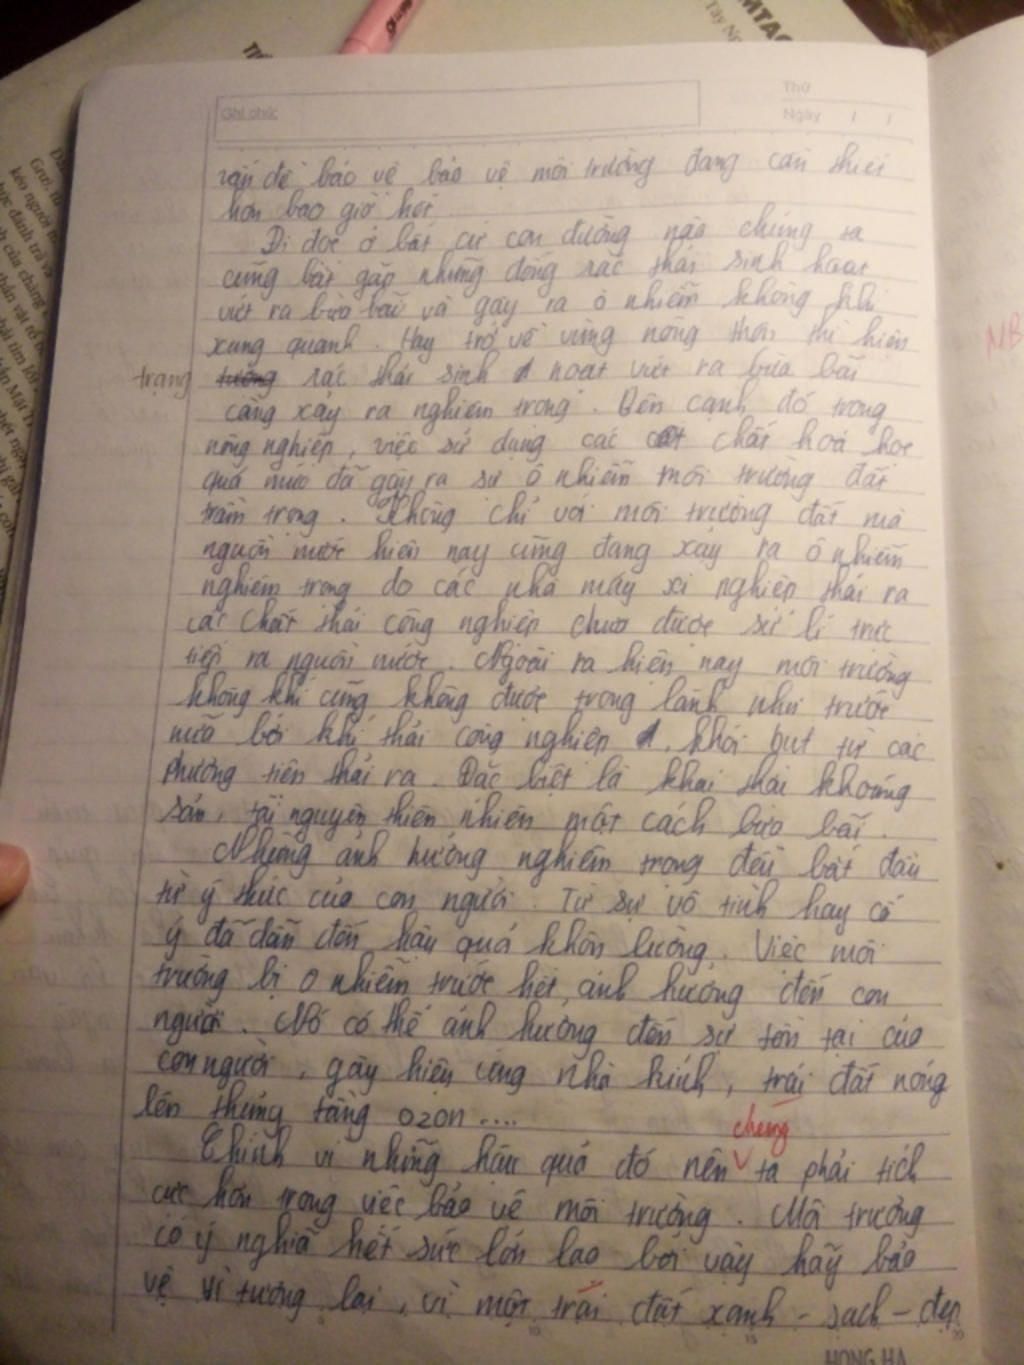 Ghi chú:
Thứ
Ngày / /
vấn đề bảo vệ bảo vệ môi trường đang cần thiết
hơn bao giờ hết
Đi dọc ở bất cứ con đường nào chúng ta
cũng bắt gặp những đống rác thải sinh hoạt
vứt ra bừa bãi và gây ra ô nhiễm không khí
xung quanh. Hay trở về vùng nông thôn thì hiện
trạng rác thải sinh hoạt vứt ra bừa bãi
càng xảy ra nghiêm trọng. Bên cạnh đó trong
nông nghiệp, việc sử dụng các chất hoá học
quá mức đã gây ra sự ô nhiễm môi trường đất
trầm trọng. Không chỉ với môi trường đất mà
nguồn nước hiện nay cũng đang xảy ra ô nhiễm
nghiêm trọng do các nhà máy xí nghiệp thải ra
các chất thải công nghiệp chưa được sử lí trực
tiếp ra nguồn nước. Ngoài ra hiện nay môi trường
không khí cũng không được trong lành như trước
nữa bởi khí thải công nghiệp, khói bụt từ các
phương tiện thải ra. Đặc biệt là khai thái khoáng
sản, tài nguyên thiên nhiên một cách bừa bãi.
Những ảnh hưởng nghiêm trọng đều bắt đầu
từ ý thức của con người. Từ sự vô tình hay cố
ý đã dẫn đến hậu quả khôn lường. Việc môi
trường bị ô nhiễm trước hết, ảnh hưởng đến con
người. Nó có thể ảnh hưởng đến sự tồn tại của
con người, gây hiệu ứng nhà kính, trái đất nóng
lên thủng tầng ozon....
Chính vì những hậu quả đó nên chúng ta phải tích
cực hơn trong việc bảo vệ môi trường. Môi trường
có ý nghĩa hết sức lớn lao bởi vậy hãy bảo
vệ vì tương lai, vì một trái đất xanh - sạch - đẹp
HONG HA